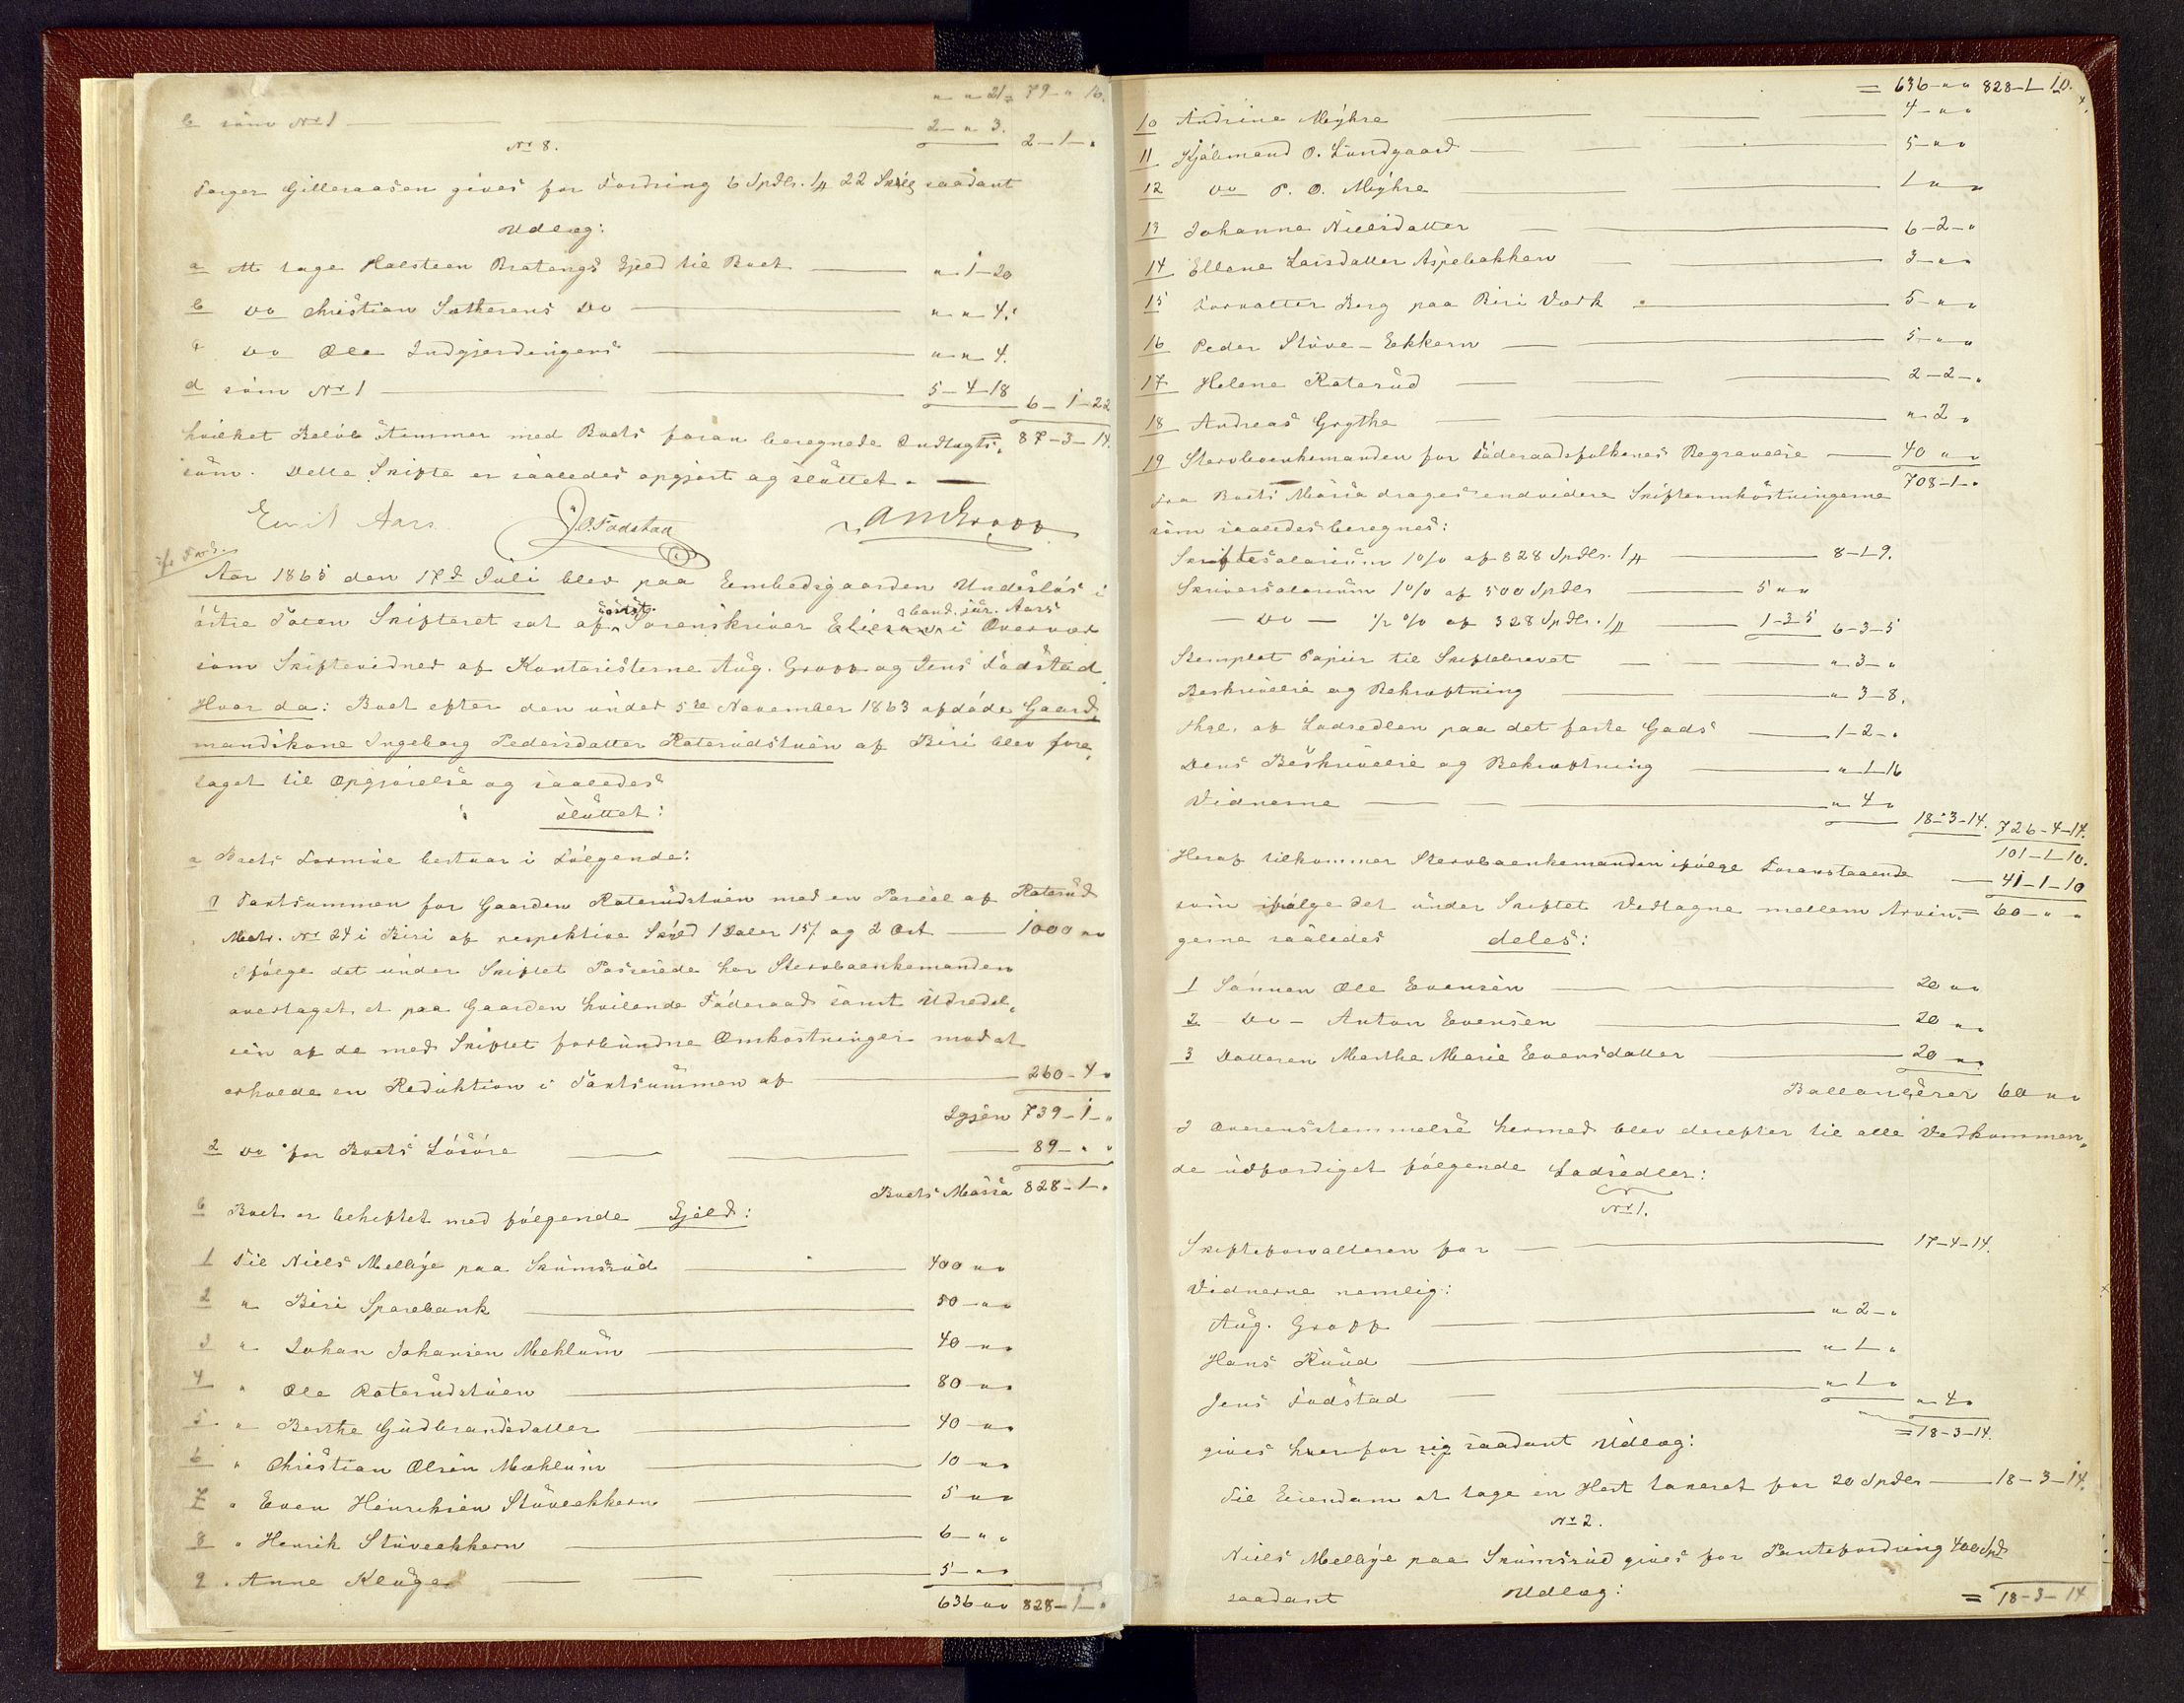 " " 21 = 79 - " 16.
b som No 1 — 2 - " 3. 2 - 1 - "
No 8.
Torger Gilleraasen gives for Fordring 6 Spdlr. 1/4 22 Skilg saadant
Udlæg:
a At tage Halsteen Bratengs Gjæld til Boet — " 1 - 20
b do Christian Sætherens do — " " 4.
c do Ole Indgjerdingens — " " 4.
d som No 1 — 5 - 4 - 18 6 - 1 - 22
hvilket Beløb stemmer med Boets foran beregnede Indtægts- = 87 - 3 - 14.
sum. Dette Skifte er saaledes opgjort og sluttet. —
Emil Aars JO. Fodstad A M Gropp
Aar 1865 den 17de Juli blev paa Embedsgaarden Undeslös i
östre Toten Skifteret sat af const. Sorenskriver Eliesen cand. jur. Aars i Overvær
som Skiftevidner af Kontoristerne Aug. Gropp og Jens Fodstad.
Hvor da: Boet efter den under 5te November 1863 afdøde Gaard-
mandskone Ingeborg Pedersdatter Raterudstuen af Biri blev fore-
taget til Opgjørelse og saaledes
sluttet:
a Boets Formue bestaar i Følgende:
1 Taxtsummen for Gaarden Raterudstuen med en Parcel af Raterud
Matr. No 24 i Biri af respektive Skyld 1 Daler 15 / og 2 Ort — 1000 " "
Ifølge det under Skiftet Passerede har Stervboenkemanden
overtaget et paa Gaarden hvilende Føderaad samt Udredel-
sen af de med Skiftet forbundne Omkostninger mod at
erholde en Reduktion i Taxtsummen af — 260 - 4 "
Igjen 739 - 1 - "
2 do for Boets Løsøre — 89 - " "
Boets Massa 828 - 1 - "
b Boet er beheftet med følgende Gjæld:
1 Til Niels Mellbye paa Skumsrud — 400 " "
2 " Biri Sparebank — 50 - " "
3 " Johan Johansen Mehlum — 40 - " "
4 " Ole Raterudstuen — 80 - " "
5 " Berthe Gudbrandsdatter — 40 - " "
6 " Christian Olsen Mæhlum — 10 - " "
7 " Even Henriksen Stuveekkern — 5 " "
8 " Henrik Stuveekkern — 6 - " "
9 " Anne Kluge — 5 - " "
636 " " 828 - 1 - "
= 636 - " " 828 - 1 10.
10 Andrine Myhre — 4 - " "
11 Hjälemand O. Lundgaard — 5 - " "
12 do P. O. Myhre — 1 " "
13 Johanne Nielsdatter — 6 - 2 - "
14 Ellene Larsdatter Aspebakken — 3 - " "
15 Forvalter Berg paa Biri Værk — 5 - " "
16 Peder Stuve-Ekkern — 5 - " "
17 Helene Raterud — 2 - 2 - "
18 Andreas Grythe — " 2 "
19 Stervboenkemanden for Føderaadsfolkenes Begravelse — 40 " "
708 - 1 - "
Fra Boets Massa drages endvidere Skifteomkostningerne
som saaledes beregnes:
Skiftesalarium 1 % af 828 Spdlr. 1/4 — 8 - 1 9.
Skriversalarium 1 % af 500 Spdlr — 5 " "
— do — 1/2 % af 328 Spdlr. 1/4 — 1 - 3 5 6 - 3 - 5
Stemplet Papiir til Skiftebrevet — " 3 - "
Beskrivelse og Bekræftning — " 3 - 8.
Thgl. af Lodsedlen paa det faste Gods — 1 - 2 - "
Dens Beskrivelse og Bekræftning — " 1 16
Vidnerne — " 4 "
18 - 3 - 14. 726 - 4 - 14.
101 - 1 - 10.
Heraf tilkommer Stervboenkemanden ifølge Foranstaaende — 41 - 1 - 10
som ifølge det under Skiftet Vedtagne mellem Arvin- = 60 - " "
gerne saaledes deles:
1 Sønnen Ole Evensen — 20 " "
2 — do — Anton Evensen — 20 " "
3 Datteren Marthe Marie Evensdatter — 20 " "
Ballancerer 60 " "
I Overensstemmelse hermed blev derefter til alle Vedkommen-
de udfærdiget følgende Lodsedler:
No 1.
Skifteforvalteren for — 17 - 4 - 14.
Vidnerne nemlig:
Aug. Gropp — " 2 - "
Hans Ruud — " 1 "
Jens Fodstad — " 1 " " 4 "
= 18 - 3 - 14.
gives hver for sig saadant Udlæg:
Til Eiendom at tage en Hest taxeret for 20 Spdlr — 18 - 3 - 14.
No 2.
Niels Mellbye paa Skumsrud gives for Pantefordring 400 Spd
saadant Udlæg: = 18 - 3 - 14